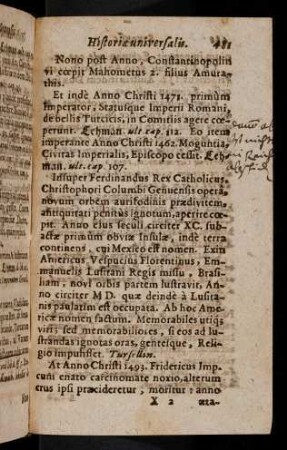 Historiæ universalis.
Nono post Anno, Constantinopolin
vi cœpit Mahometus 2. filius Amura-
this.
Et indè Anno Christi 1471. primùm
Imperator, Statusque Imperii Romani,
de bellis Turcicis, in Comitiis agere cœ-
perunt. Lehman. ult. cap. 112. Eo item
imperante Anno Christi 1462. Moguntia,
Civitas Imperialis, Episcopo cessit. Leh-
man. ult. cap. 107.
Insuper Ferdinandus Rex Catholicus
Christophori Columbi Genuensis operâ
novum orbem aurifodinis prædivitem,
antiquitati penitus ignotum, aperire cœ-
pit. Anno ejus seculi circiter XC. sub-
actæ primùm obviæ Insulæ, indè terra
continens, cui Mexico est nomen. Exin
Americus Vespucius Florentinus, Em-
manuelis Lusitani Regis missu, Brasi-
liam, novi orbis partem lustravit, An-
no circiter M D. quæ deindè à Lusita-
nis paulatim est occupata. Ab hoc Ame-
ricæ nomen factum. Memorabiles utiq;
viri; sed memorabiliores, si eos ad lu-
strandas ignotas oras, gentesque, Reli-
gio impulisset. Tursellin.
At Anno Christi 1493. Fridericus Imp.
cum enato carcinomate noxio, alterum
crus ipsi præcideretur, moritur: anno
X 2 æta-